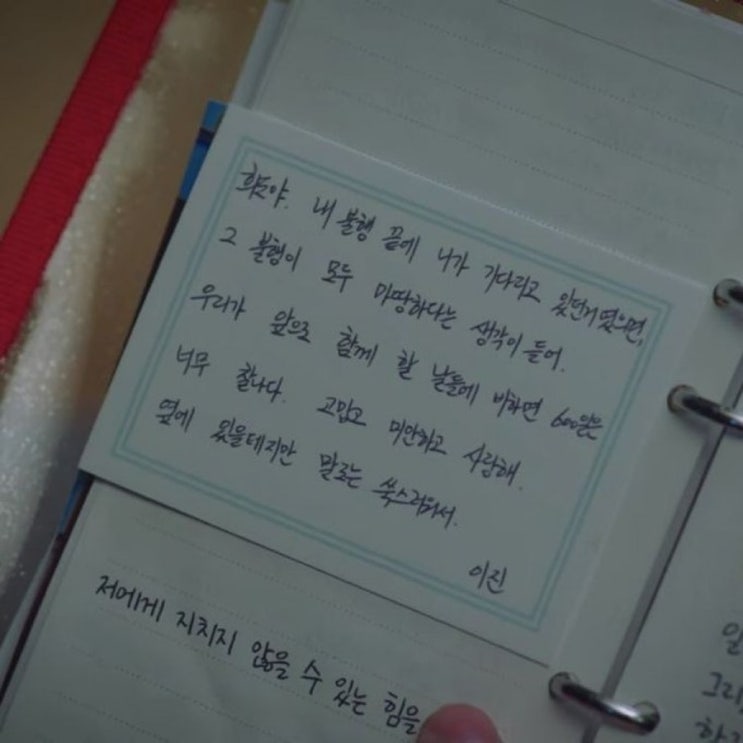 희도야. 내 불행 끝에 니가 기다리고 있던거였으면,
그 불행이 모두 마땅하다는 생각이 들어.
우리가 앞으로 함께 할 날들에 비하면 600일은
너무 찰나다. 고맙고 미안하고 사랑해.
옆에 있을테지만 말로는 쑥스러워서.
이진
저에게 지치지 않을 수 있는 힘을